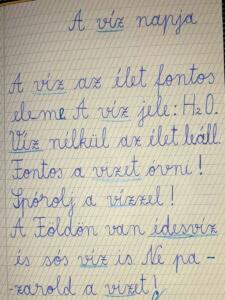 A víz napja
A víz az élet fontos
eleme. A víz jele: H₂O.
Víz nélkül az élet leáll.
Fontos a vizet óvni!
Spórolj a vízzel!
A Földön van édesvíz
és sós víz is Ne pa-
-zarold a vizet!